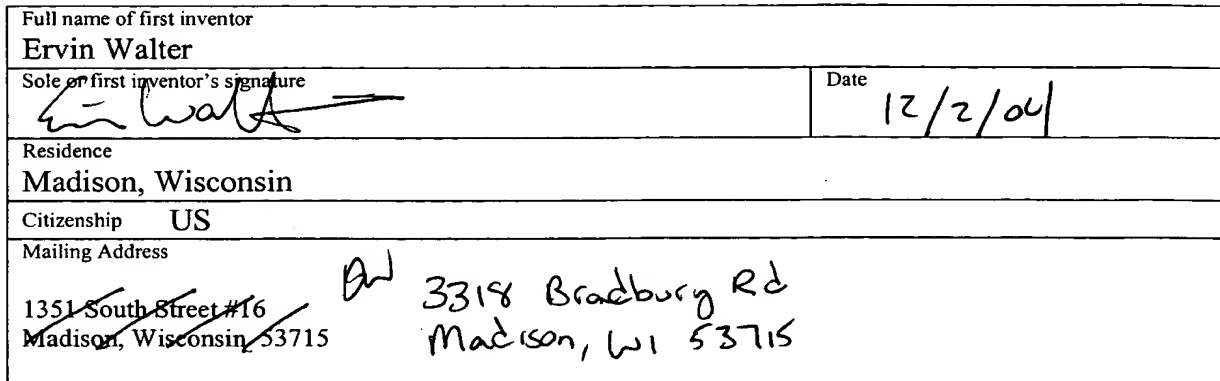 Full name of first inventor
Ervin Walter
Sole or first inventor's signature
Date
12/2/04
Residence
Madison, Wisconsin
Citizenship US
Mailing Address
1351 South Street #16
Madison, Wisconsin 53715
3318 Bradbury Rd
Madison, WI 53715